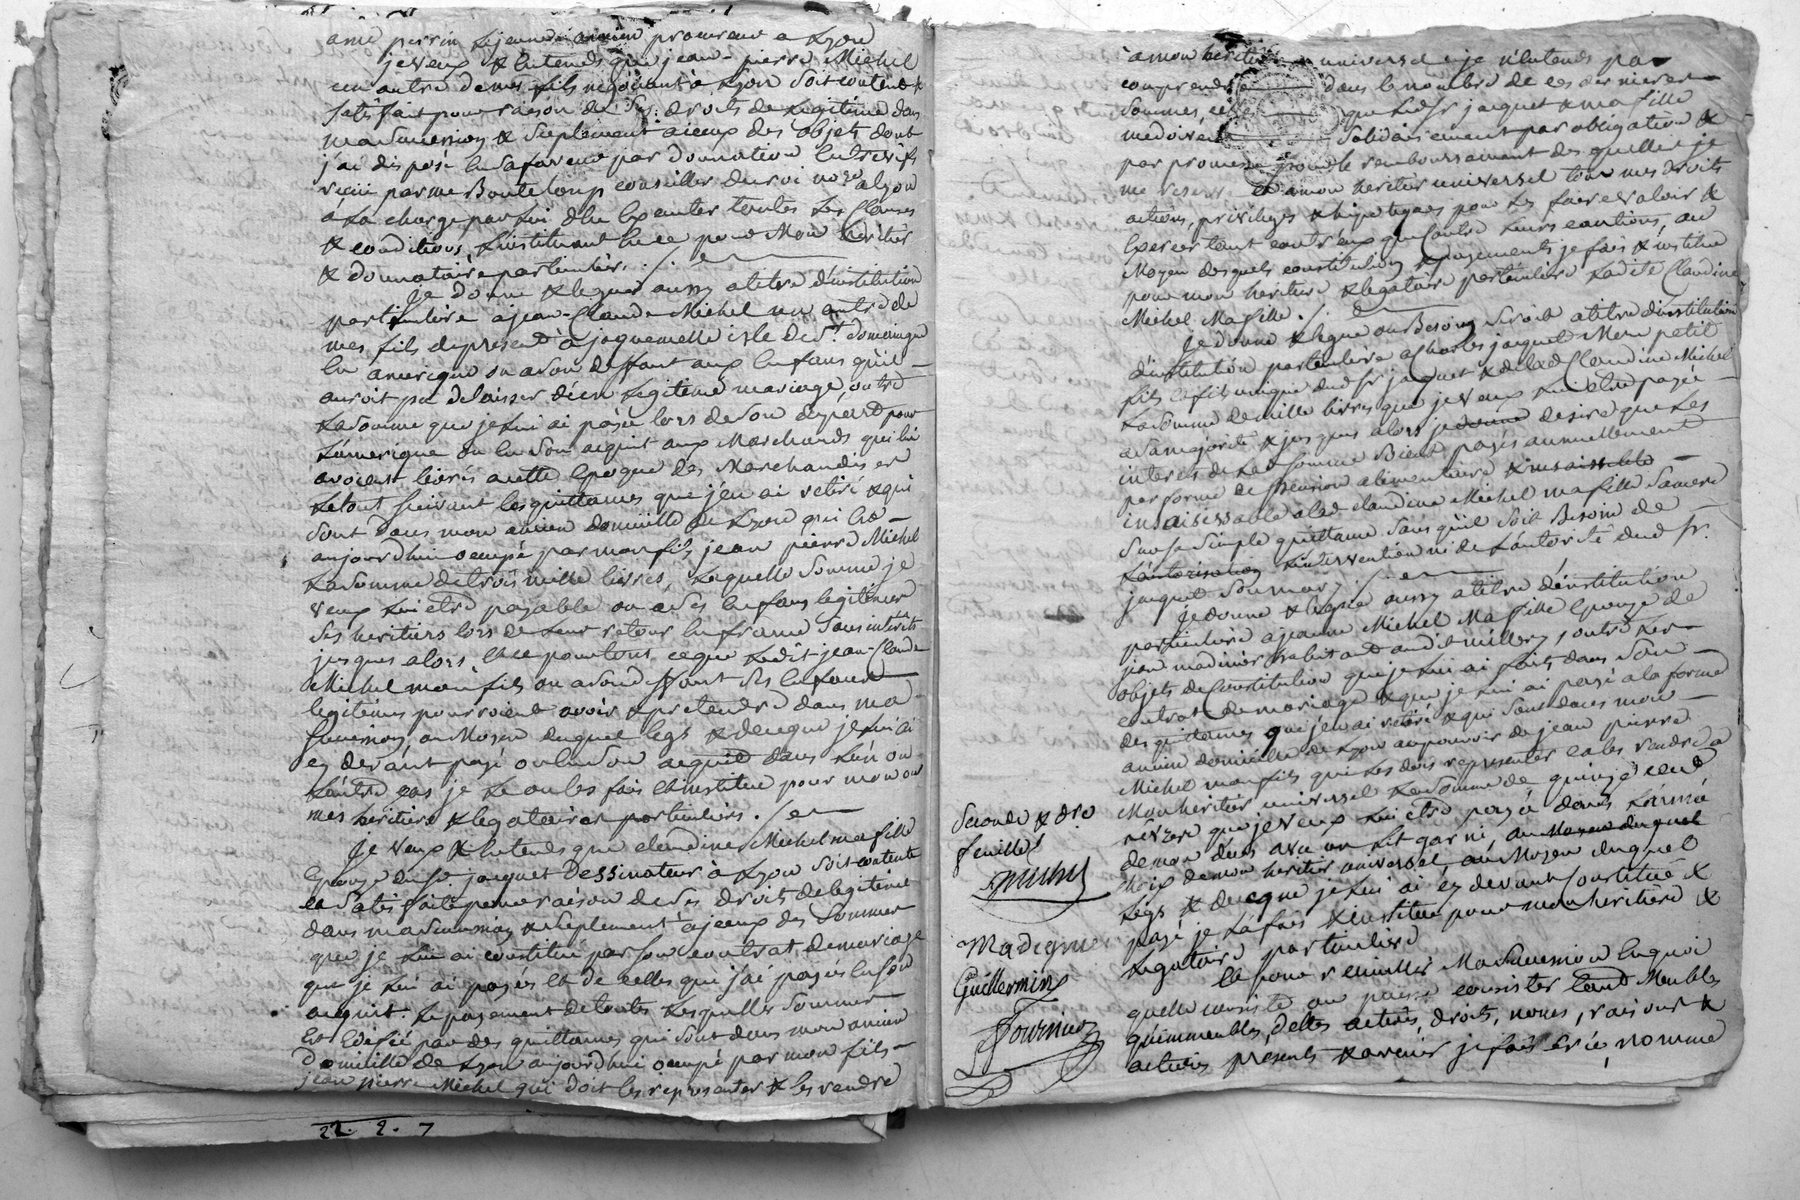 amé perrin Lejeune ancien procureur a Lyon
je veux & Entends que jean-pierre Michel
un autre de mes fils négociant à Lyon soit content &
satisfait pour raison de ses droits de Legitime dans
ma succession & suplement diceux des objets dont
j'ai disposé en sa faveur par donnation Entrevifs
reçüe par me Bonteloup conseiller du roi no.re a Lyon
à La charge par Lui d'En Exécuter toutes Les Clauses
& conditions, L'instituant En ce pour Mon heritier
& donnataire particulier. /.
Je donne & legue aussy a titre d'institution
particuliere a jean-Claude Michel un autre de
mes fils de present à jaquemelle isle de St. domaingue
En amerique ou a son deffaut aux Enfans qu'il
auroit pu delaisser d'un Legitime mariage, outre
La somme que je Lui ai payée lors de son départ pour
L'amerique ou En son acquit aux Marchands qui lui
avoient livrés a cette Epoque des Marchandises
Le tout suivant les quittances que j'en ai retiré & qui
sont dans mon ancien domicille de Lyon qui Est
aujourdhui occupé par mon fils jean pierre Michel
La somme de trois mille livres, Laquelle somme je
veux Lui etre payable ou a ses Enfans legitimes
ses heritiers lors de Leur retour En france sans intérêts
jusques alors, Et ce pour tout ce que Ledit jean-Claude
Michel mon fils ou a son deffaut ses Enfans
legitimes pourroient avoir & pretendre dans ma
succession, au Moyen duquel legs & de ce que je Lui ai
cy devant payé ou En son acquit dans L'un ou
L'autre cas je Le ou les fais & institue pour mon ou
mes heritiers & legataires particuliers. /.
Je Veux & Entends que claudine Michel ma fille
Epouse du sr jacquet Dessinateur à Lyon soit contente
& satisfaite pour raison de ses droits de legitime
dans ma succession & suplement d'iceux des sommes
que je Lui ai constitué par son contrat de mariage
que je Lui ai payés Et de celles que j'ai payés En son
acquit. Le payement de toutes Lesquelles sommes
Est Vérifié par des quittances qui sont dans mon ancien
domicille de Lyon aujourdhui occupé par mon fils
jean pierre Michel qui doit les representer & les rendre
22. 2. 7
a mon heritier universel je n'Entends pas
comprendre dans le nombre de ces dernieres
sommes, celles que Led. sr jacquet & ma fille
me doivent solidairement par obligation &
par promesse pour le remboursement desquelles je
me reserve Et a mon heritier universel tous mes droits
actions, privileges & hipoteques pour Les faire valoir &
Exercer tant contr'eux que Contre Leurs cautions, au
Moyen desquels constitution & payements je fais & institue
pour mon heritiere & legataire particuliere Ladite Claudine
Michel Ma fille. /.
Je donne & legue au Besoing seroit a titre d'institution
d'institution particuliere a Charles jacquet Mon petit
fils Et fils unique dud. sr jacquet & de Lad. Claudine Michel
La somme de mille livres que je veux Lui etre payée
a sa majorité & jusques alors je donne desire que Les
interets de Lad. somme soient payés annuellement
par forme de pension alimentaire & insaisissable
insaisissable a lad. claudine Michel ma fille sa mere
sur sa simple quittance sans qu'il soit Besoin de
L'autorisation L'intervention ni de L'autorité dud. sr.
jacquet son mary. /.
Je donne & legue aussy a titre d'institution
particuliere a jeanne Michel Ma fille Epouse de
jean madinier habitant audit millery, outre Les
objets de Constitution que je Lui ai faits dans son
contrat de mariage & que je Lui ai payé a la forme
des quittances que j'en ai retiré & qui sont dans mon
ancien domicille de Lyon au pouvoir de jean pierre
Michel mon fils qui Les doit representer et les rendre a
Mon heritier universel La somme de quinze cens
livres que je veux Lui etre payé dans L'année
de mon décès avec un Lit garni, au Moyen duquel
choix de mon heritier universel, au Moyen duquel
Legs & de ce que je Lui ai cy devant Constitué &
payé je La fais & institue pour mon heritiere &
Legataire particuliere
Et pour recueillir Ma succession En quoi
quelle consiste ou puisse consister tant Meubles
qu'immeubles, dettes actives, droits, noms, raisons &
actions presents & avenir je fais crée, nomme
Seconde & dre
feuille
Michel
Madignier
Guillermin
Fournier